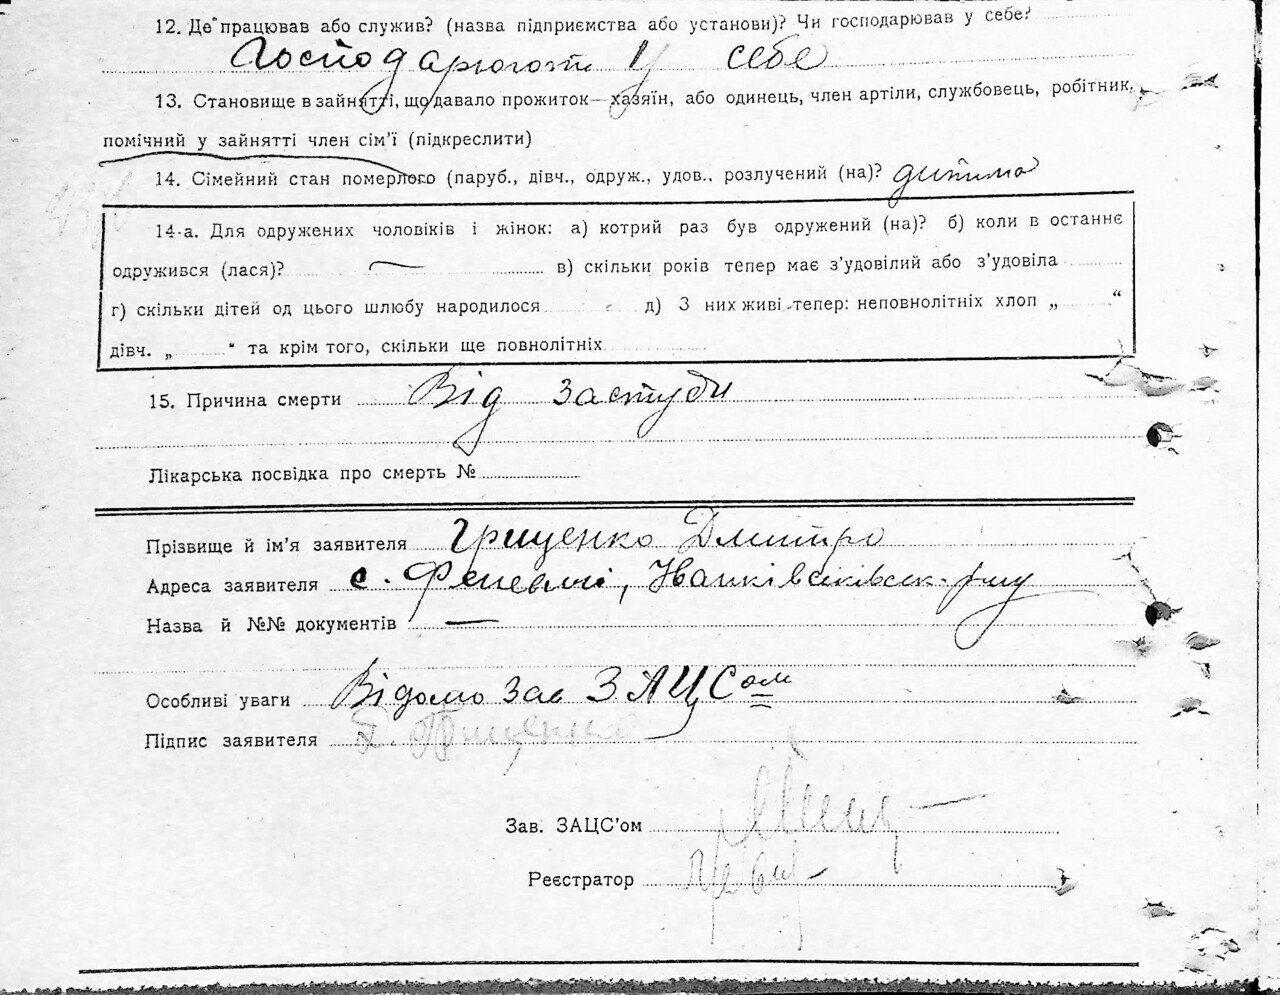 12. Де працював або служив? (назва підприємства або установи)? Чи господарював у себе?
Господарюють у себе
13. Становище в зайнятті, що давало прожиток—хазяїн, або одинець, член артіли, службовець, робітник,
помічний у зайнятті член сім’ї (підкреслити)
14. Сімейний стан померлого (паруб., дівч., одруж., удов., розлучений (на)? дитина
14-а. Для одружених чоловіків і жінок: а) котрий раз був одружений (на)? б) коли в останнє
одружився (лася)? — в) скільки років тепер має з’удовілий або з’удовіла
г) скільки дітей од цього шлюбу народилося д) З них живі тепер: неповнолітніх хлоп „ “
дівч. „ “ та крім того, скільки ще повнолітніх
15. Причина смерти Від застуди
Лікарська посвідка про смерть №
Прізвище й ім’я заявителя Грищенко Дмитро
Адреса заявителя с.
Назва й №№ документів —
Особливі уваги Відомо Зав ЗАЦСом
Підпис заявителя Д. Грищенко
Зав. ЗАЦС’ом
Реєстратор